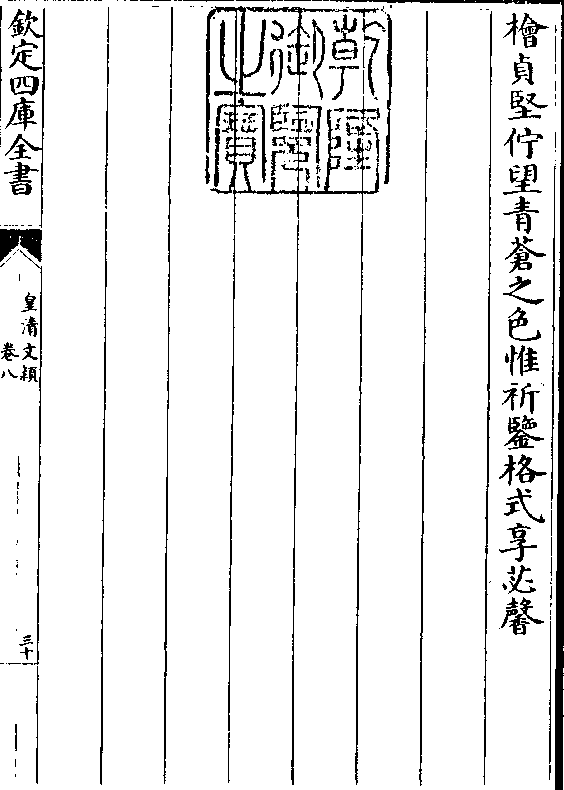 檜貞堅佇望青蒼之色惟祈鑒格式享苾馨
乾隆
御覽
之寶
欽定四庫全書
皇清文穎
卷八
三十